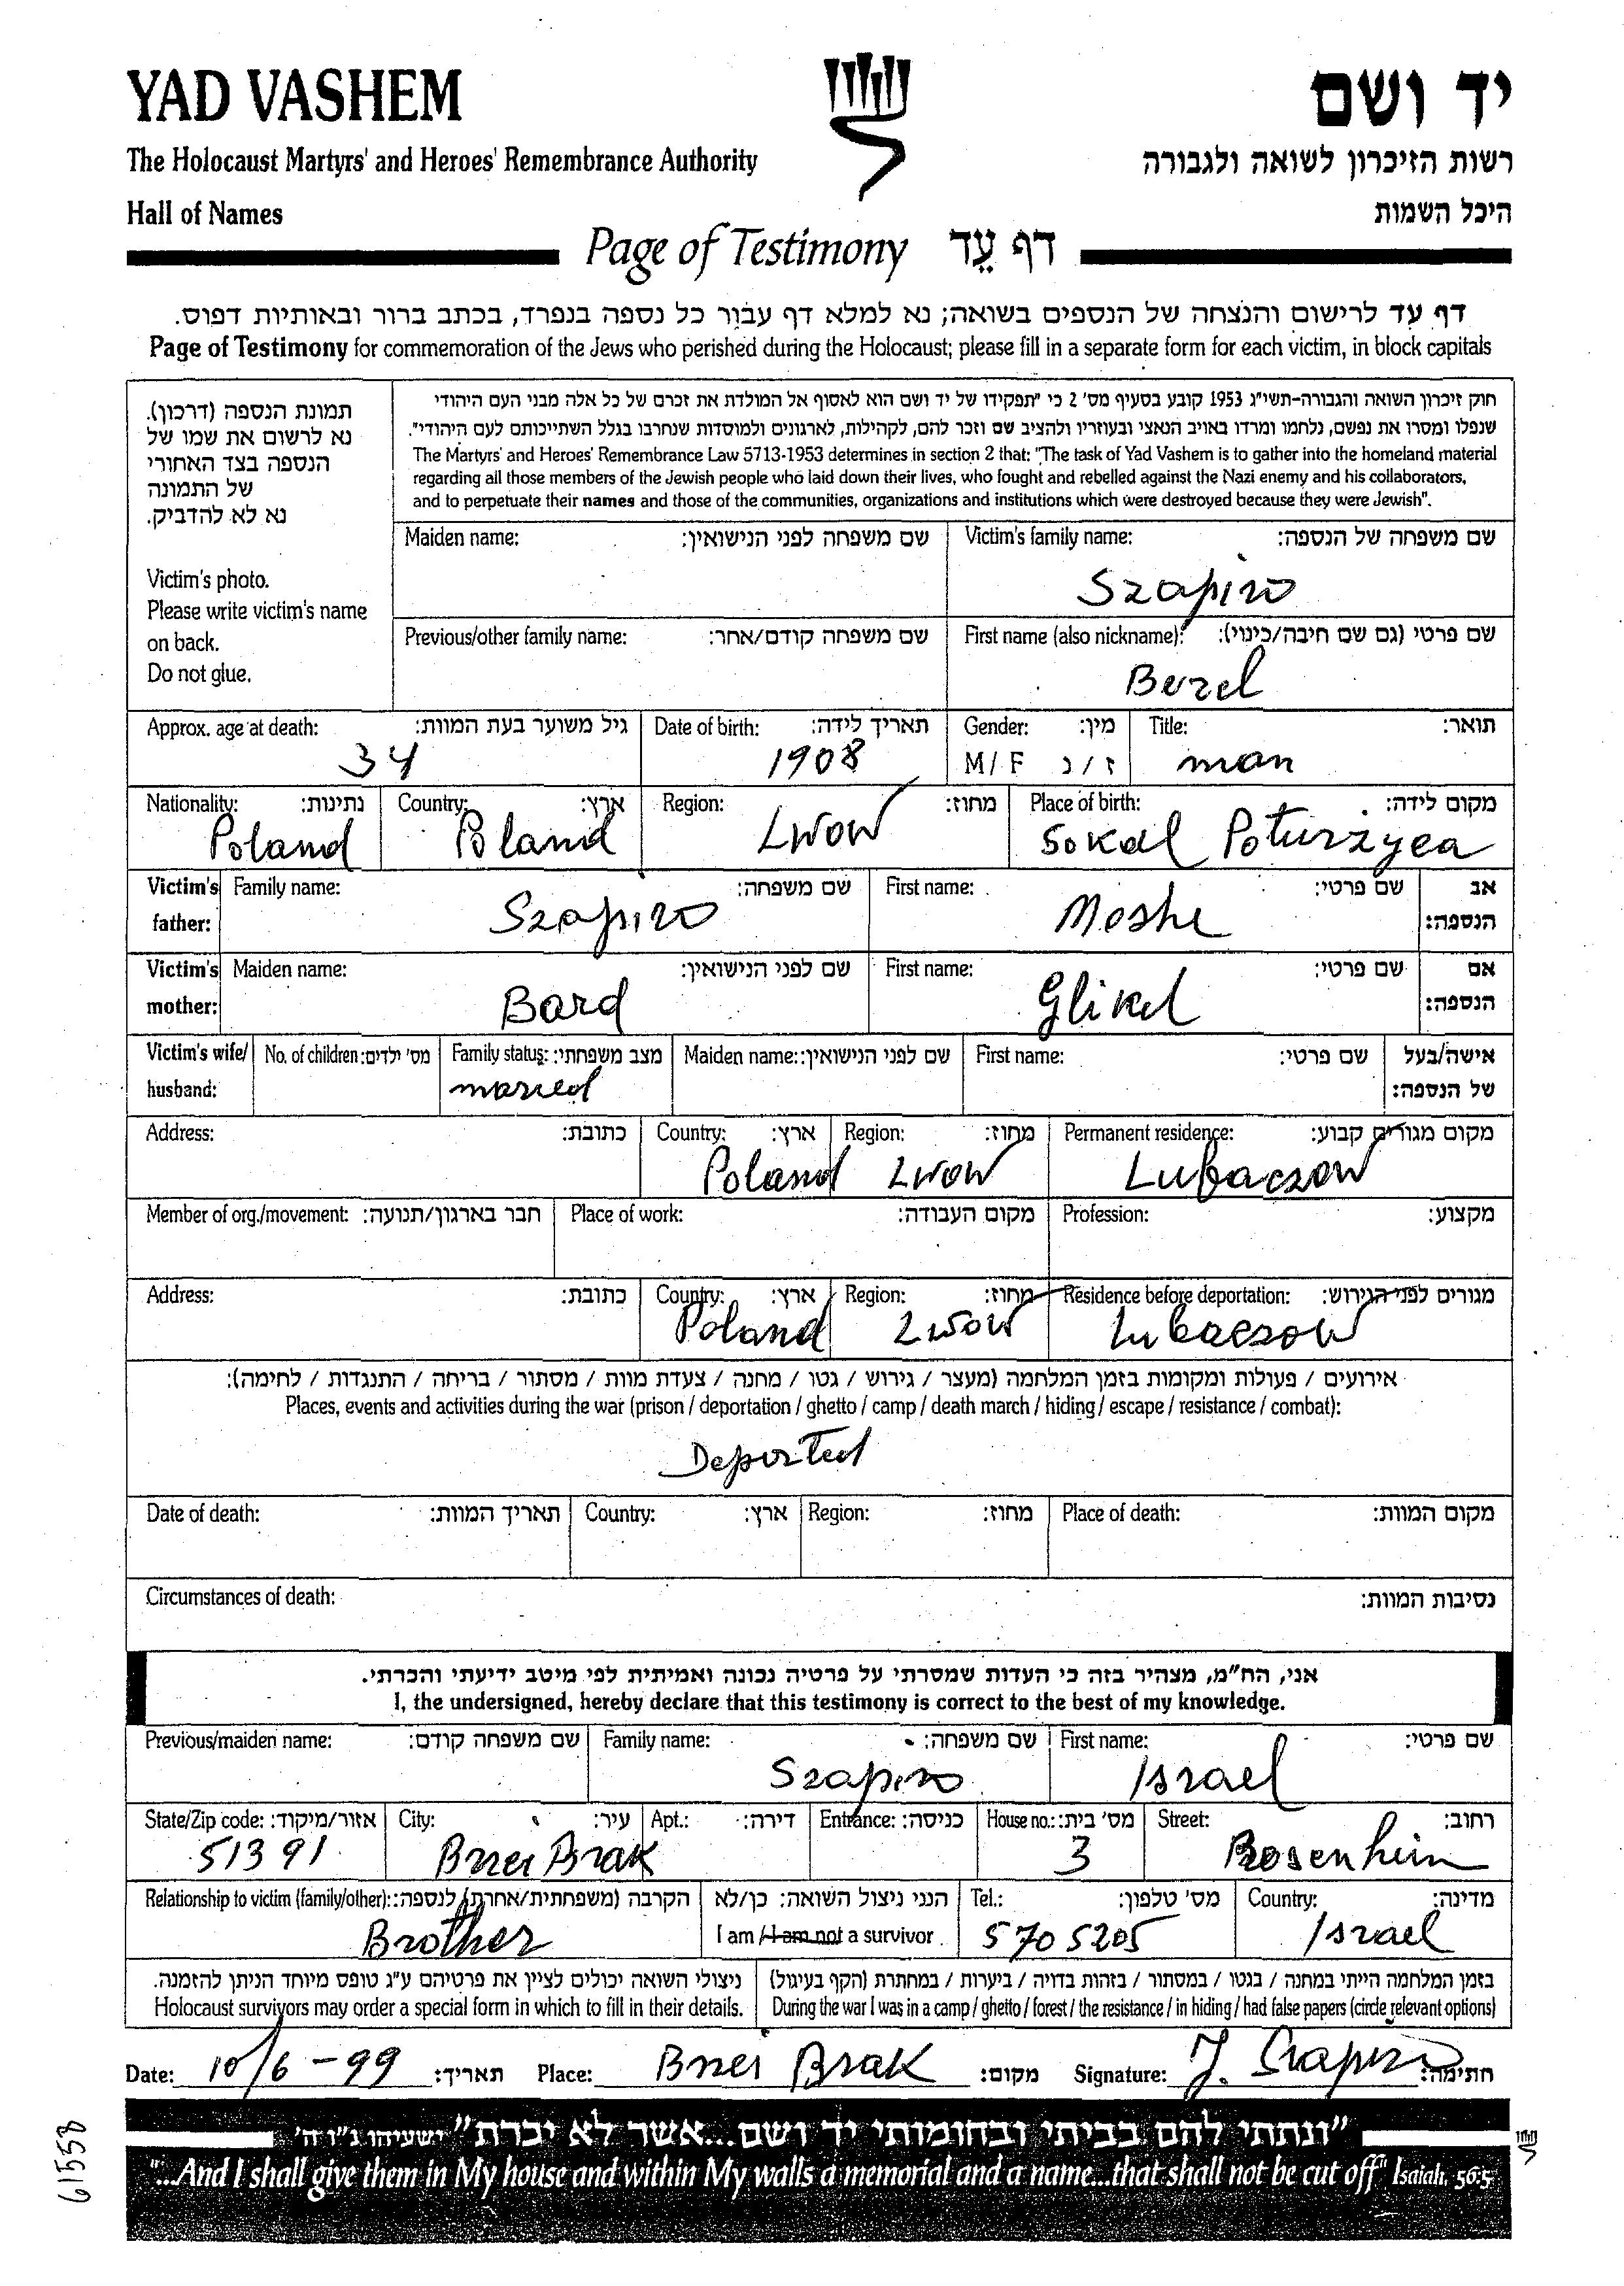 YAD VASHEM
יד ושם
The Holocaust Martyrs' and Heroes' Remembrance Authority
רשות הזיכרון לשואה ולגבורה
Hall of Names
היכל השמות
Page of Testimony דף עֵד
דף עד לרישום והנצחה של הנספים בשואה; נא למלא דף עבור כל נספה בנפרד, בכתב ברור ובאותיות דפוס.
Page of Testimony for commemoration of the Jews who perished during the Holocaust; please fill in a separate form for each victim, in block capitals
תמונת הנספה (דרכון).
נא לרשום את שמו של
הנספה בצד האחורי
של התמונה
נא לא להדביק.
Victim's photo.
Please write victim's name
on back.
Do not glue.
חוק זיכרון השואה והגבורה-תשי"ג 1953 קובע בסעיף מס' 2 כי "תפקידו של יד ושם הוא לאסוף אל המולדת את זכרם של כל אלה מבני העם היהודי
שנפלו ומסרו את נפשם, נלחמו ומרדו באויב הנאצי ובעוזריו ולהציב שם וזכר להם, לקהילות, לארגונים ולמוסדות שנחרבו בגלל השתייכותם לעם היהודי".
The Martyrs' and Heroes' Remembrance Law 5713-1953 determines in section 2 that: "The task of Yad Vashem is to gather into the homeland material
regarding all those members of the Jewish people who laid down their lives, who fought and rebelled against the Nazi enemy and his collaborators,
and to perpetuate their names and those of the communities, organizations and institutions which were destroyed because they were Jewish".
Maiden name: שם משפחה לפני הנישואין:
Victim's family name: שם משפחה של הנספה:
Szapiro
Previous/other family name: שם משפחה קודם/אחר:
First name (also nickname): שם פרטי (גם שם חיבה/כינוי):
Berel
Approx. age at death: גיל משוער בעת המוות:
34
Date of birth: תאריך לידה:
1908
Gender: מין:
M / F ז / נ
Title: תואר:
man
Nationality: נתינות:
Poland
Country: ארץ:
Poland
Region: מחוז:
LWOW
Place of birth: מקום לידה:
Sokal Poturzyca
Victim's father: Family name: שם משפחה:
Szapiro
First name: שם פרטי:
Moshe
אב הנספה:
Victim's mother: Maiden name: שם לפני הנישואין:
Bard
First name: שם פרטי:
Glikel
אם הנספה:
Victim's wife/ husband:
No. of children: מס' ילדים:
Family status: מצב משפחתי:
maried
Maiden name: שם לפני הנישואין:
First name: שם פרטי:
אישה/בעל של הנספה:
Address: כתובת:
Country: ארץ:
Poland
Region: מחוז:
LWOW
Permanent residence: מקום מגורים קבוע:
Lubaczow
Member of org./movement: חבר בארגון/תנועה:
Place of work: מקום העבודה:
Profession: מקצוע:
Address: כתובת:
Country: ארץ:
Poland
Region: מחוז:
LWOW
Residence before deportation: מגורים לפני הגירוש:
Lubaczow
אירועים / פעולות ומקומות בזמן המלחמה (מעצר / גירוש / גטו / מחנה / צעדת מוות / מסתור / בריחה / התנגדות / לחימה):
Places, events and activities during the war (prison / deportation / ghetto / camp / death march / hiding / escape / resistance / combat):
Deported
Date of death: תאריך המוות:
Country: ארץ:
Region: מחוז:
Place of death: מקום המוות:
Circumstances of death: נסיבות המוות:
אני, הח"מ, מצהיר בזה כי העדות שמסרתי על פרטיה נכונה ואמיתית לפי מיטב ידיעתי והכרתי.
I, the undersigned, hereby declare that this testimony is correct to the best of my knowledge.
Previous/maiden name: שם משפחה קודם:
Family name: שם משפחה:
Szapiro
First name: שם פרטי:
Israel
State/Zip code: אזור/מיקוד:
51391
City: עיר:
Bnei Brak
Apt.: דירה:
Entrance: כניסה:
House no.: מס' בית:
3
Street: רחוב:
Rosenheim
Relationship to victim (family/other): הקרבה (משפחתית/אחרת) לנספה:
Brother
הנני ניצול השואה: כן/לא
I am / I am not a survivor
Tel.: מס' טלפון:
5705205
Country: מדינה:
Israel
ניצולי השואה יכולים לציין את פרטיהם ע"ג טופס מיוחד הניתן להזמנה.
Holocaust survivors may order a special form in which to fill in their details.
בזמן המלחמה הייתי במחנה / בגטו / במסתור / בזהות בדויה / ביערות / במחתרת (הקף בעיגול)
During the war I was in a camp / ghetto / forest / the resistance / in hiding / had false papers (circle relevant options)
Date: 10/6 - 99 תאריך: Place: Bnei Brak מקום: Signature: J. Szapiro חתימה:
"ונתתי להם בביתי ובחומותי יד ושם...אשר לא יכרת" ישעיהו נ"ו ה'
"...And I shall give them in My house and within My walls a memorial and a name...that shall not be cut off" Isaiah, 56:5
61558